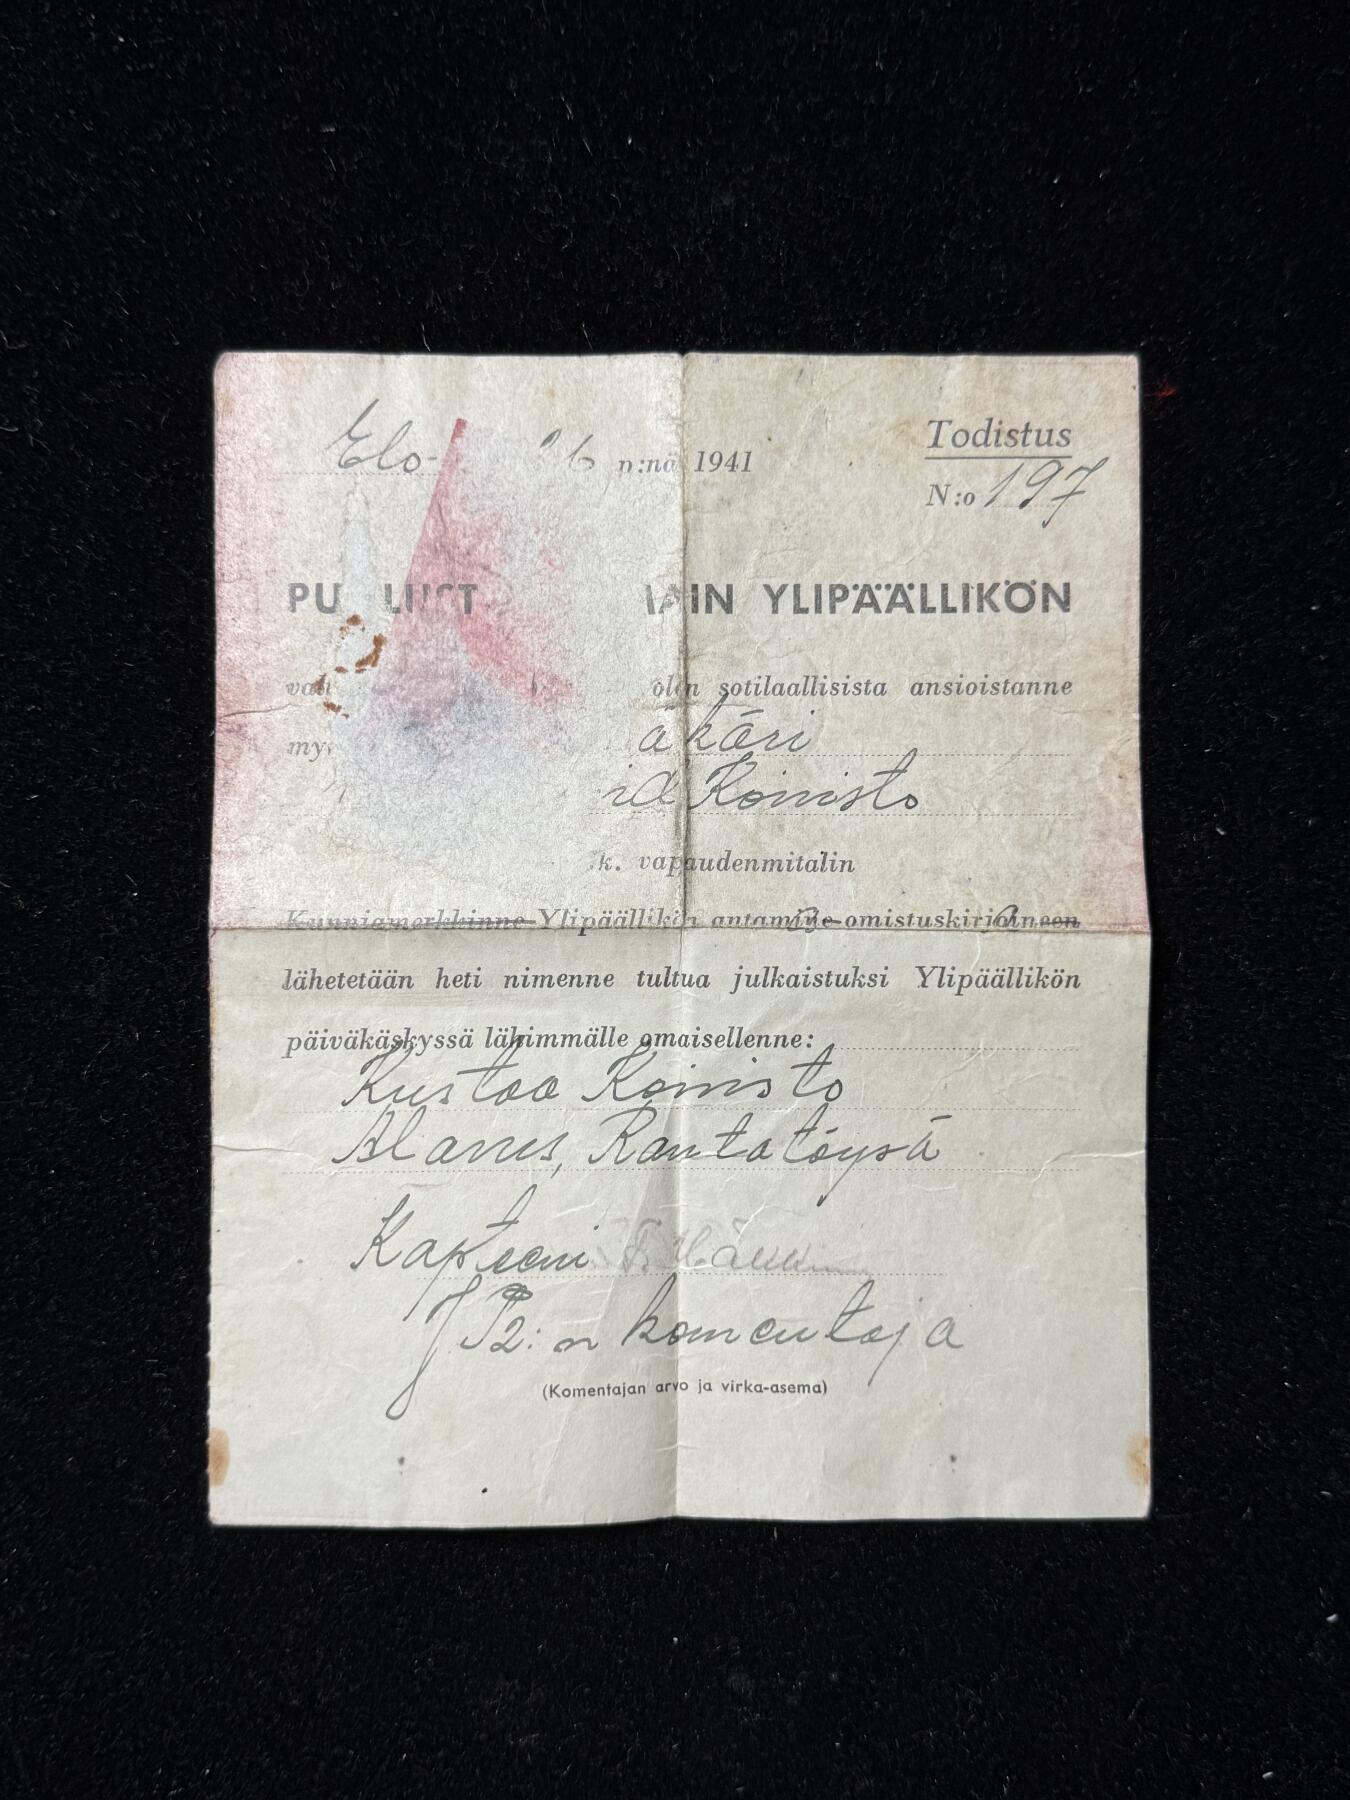 Elo- 26 p:nä 1941
Todistus
N:o 197
PU LUST AIN YLIPÄÄLLIKÖN
val olen sotilaallisista ansioistanne
my äkäri
id Koivisto
k. vapaudenmitalin
Kunniamerkkinne Ylipäällikön antamine omistuskirjoineen
lähetetään heti nimenne tultua julkaistuksi Ylipäällikön
päiväkäskyssä lähimmälle omaisellenne:
Kustaa Koivisto
Alavus, Rantatöysä
Kapteeni
JP2:n komentaja
(Komentajan arvo ja virka-asema)